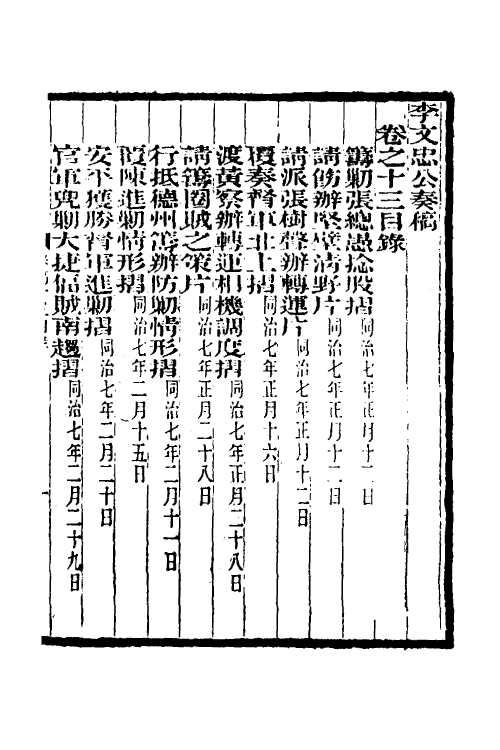 李文忠公奏稿
卷之十三目錄
籌剿張總愚捻股摺同治七年正月十二日
請飭辦堅壁清野片同治七年正月十二日
請派張樹聲辦轉運片同治七年正月十二日
覆奏督軍北上摺同治七年正月十六日
渡黃察辦轉運相機調度摺同治七年正月二十八日
請籌圈賊之策片同治七年正月二十八日
行抵德州籌辦防剿情形摺同治七年二月十一日
覆陳進剿情形摺同治七年二月十五日
安平獲勝督軍進剿摺同治七年二月二十日
官軍兜剿大捷偪賊南趨摺同治七年二月二十九日